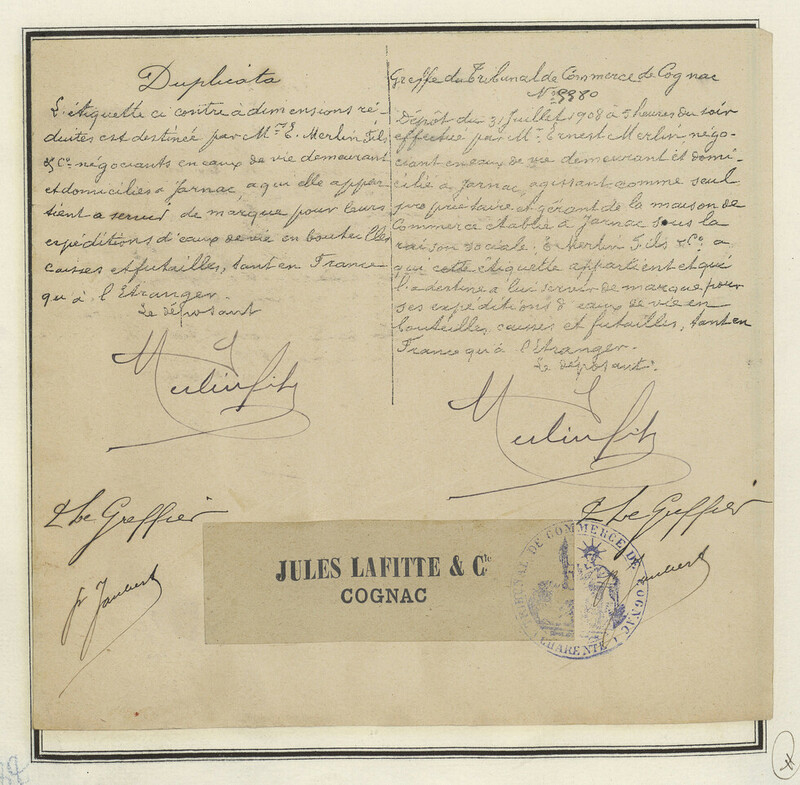 Duplicata
L'étiquette ci contre à dimensions ré-
duites est destinée par Mr E. Merlin Fils
& Co négociants en eaux de vie demeurant
et domiciliés à Jarnac, a qui elle appar-
tient a servir de marque pour leurs
expéditions d'eaux de vie en bouteilles
caisses et futailles, tant en France
qu'à l'Etranger.
Le déposant
Merlin Fils
Greffe du Tribunal de Commerce de Cognac
No 9980
Dépôt du 31 Juillet 1908 à 5 heures du soir
effectué par Mr Ernest Merlin négo-
ciant en eaux de vie demeurant et domi-
cilié à Jarnac, agissant comme seul
propriétaire et gérant de la maison de
Commerce établie à Jarnac sous la
raison sociale. E. Merlin Fils & Co a
qui cette étiquette appartient et qui
l'a destiné a lui servir de marque pour
ses expéditions d'eaux de vie en
bouteilles caisses et futailles, tant en
France qu'à l'étranger.
Le déposant.
Merlin Fils
Le Greffier
Le Greffier
JULES LAFITTE & Cie
COGNAC
TRIBUNAL DE COMMERCE DE COGNAC
CHARENTE